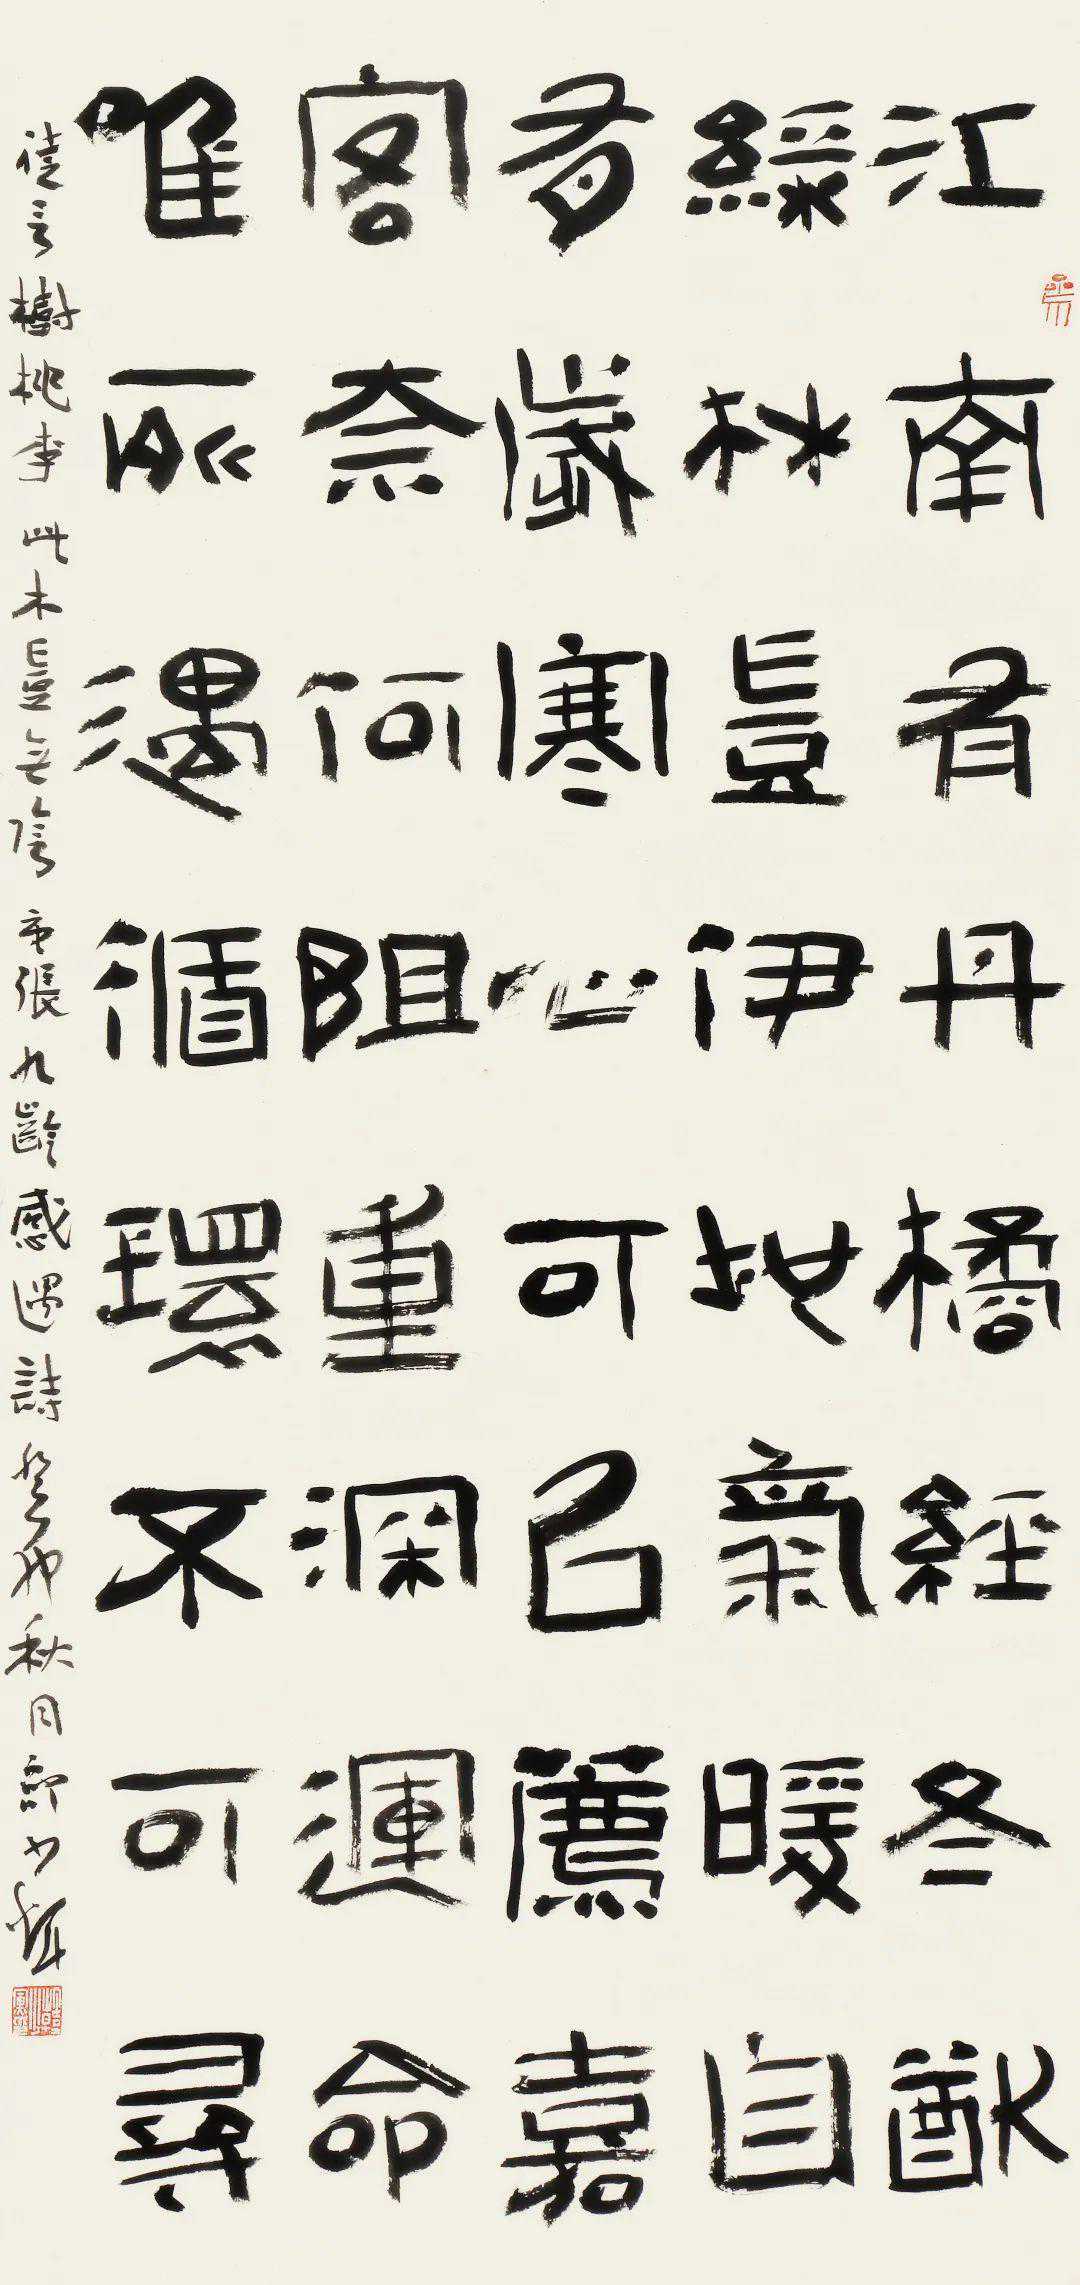 江南有丹橘經冬猷
綠林豈伊地氣暖自
有歲寒心可以薦嘉
客奈何阻重深運命
唯所遇循環不可尋
徒言樹桃李此木豈無陰 唐張九齡感遇詩 癸卯秋月